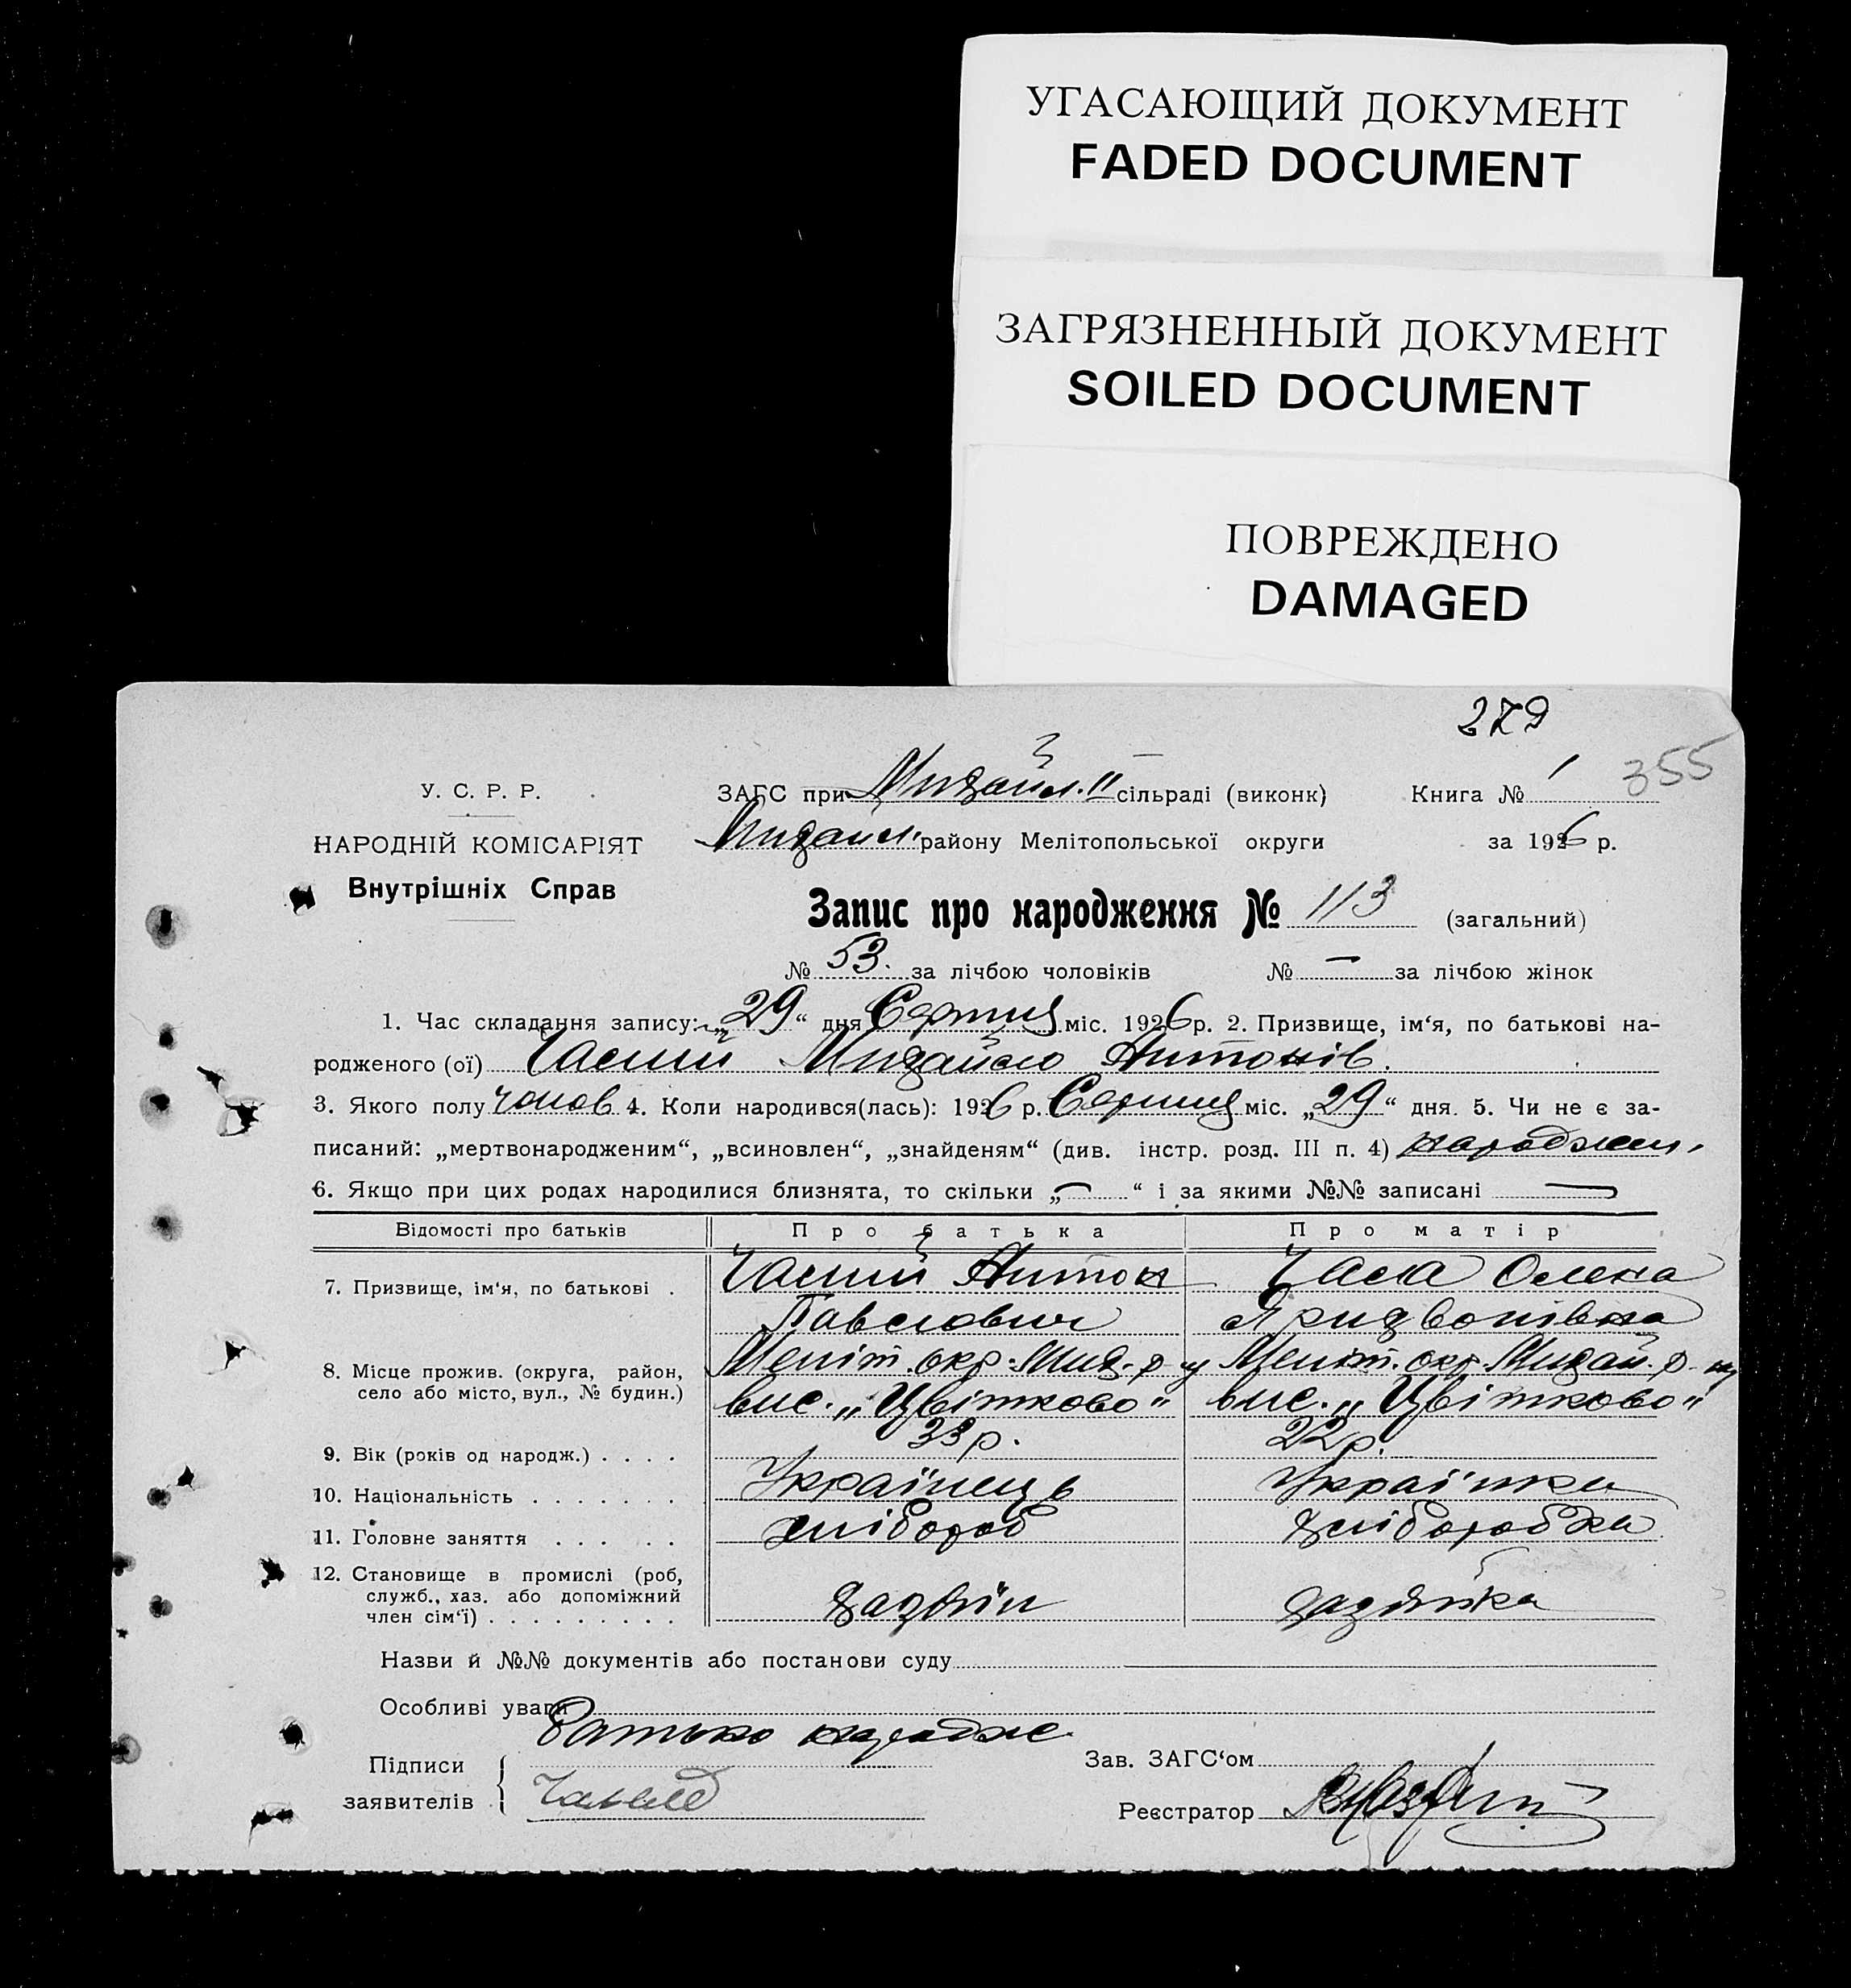 УГАСАЮЩИЙ ДОКУМЕНТ
FADED DOCUMENT
ЗАГРЯЗНЕННЫЙ ДОКУМЕНТ
SOILED DOCUMENT
ПОВРЕЖДЕНО
DAMAGED
279
355
У. С. Р. Р.
ЗАГС при Михайл. II сільраді (виконк) Книга № 1
НАРОДНІЙ КОМІСАРІЯТ
Михайл. району Мелітопольської округи за 1926 р.
Внутрішніх Справ
Запис про народження № 113 (загальний)
№ 53. за лічбою чоловіків № — за лічбою жінок
1. Час складання запису: „29“ дня Серпня міс. 1926 р. 2. Призвище, ім‘я, по батькові на-
родженого (ої) Михайло Антонів.
3. Якого полу чолов 4. Коли народився(лась): 1926 р. Серпня міс. „29“ дня. 5. Чи не є за-
писаний: „мертвонародженим“, „всиновлен“, „знайденям“ (див. інстр. розд. III п. 4) народжен.
6. Якщо при цих родах народилися близнята, то скільки „—“ і за якими №№ записані —
Відомості про батьків Про батька Про матір
7. Призвище, ім‘я, по батькові . Антон Олена
Павлович
8. Місце прожив. (округа, район, село або місто, вул., № будин.) Меліт. окр. Мих. р-у Меліт. окр. Михай. р-ну
вис. „Цвітково“ вис. „Цвітково“
9. Вік (років од народж.) . . . . 33 р. 22 р.
10. Національність . . . . . . . Українець Українка
11. Головне заняття . . . . . хлібороб хліборобка
12. Становище в промислі (роб, служб., хаз. або допоміжний член сім‘ї) . . . . . . . . . хазяїн хазяйка
Назви й №№ документів або постанови суду
Особливі уваги
Батько народже
Підписи
заявителів
Зав. ЗАГС‘ом
Реєстратор